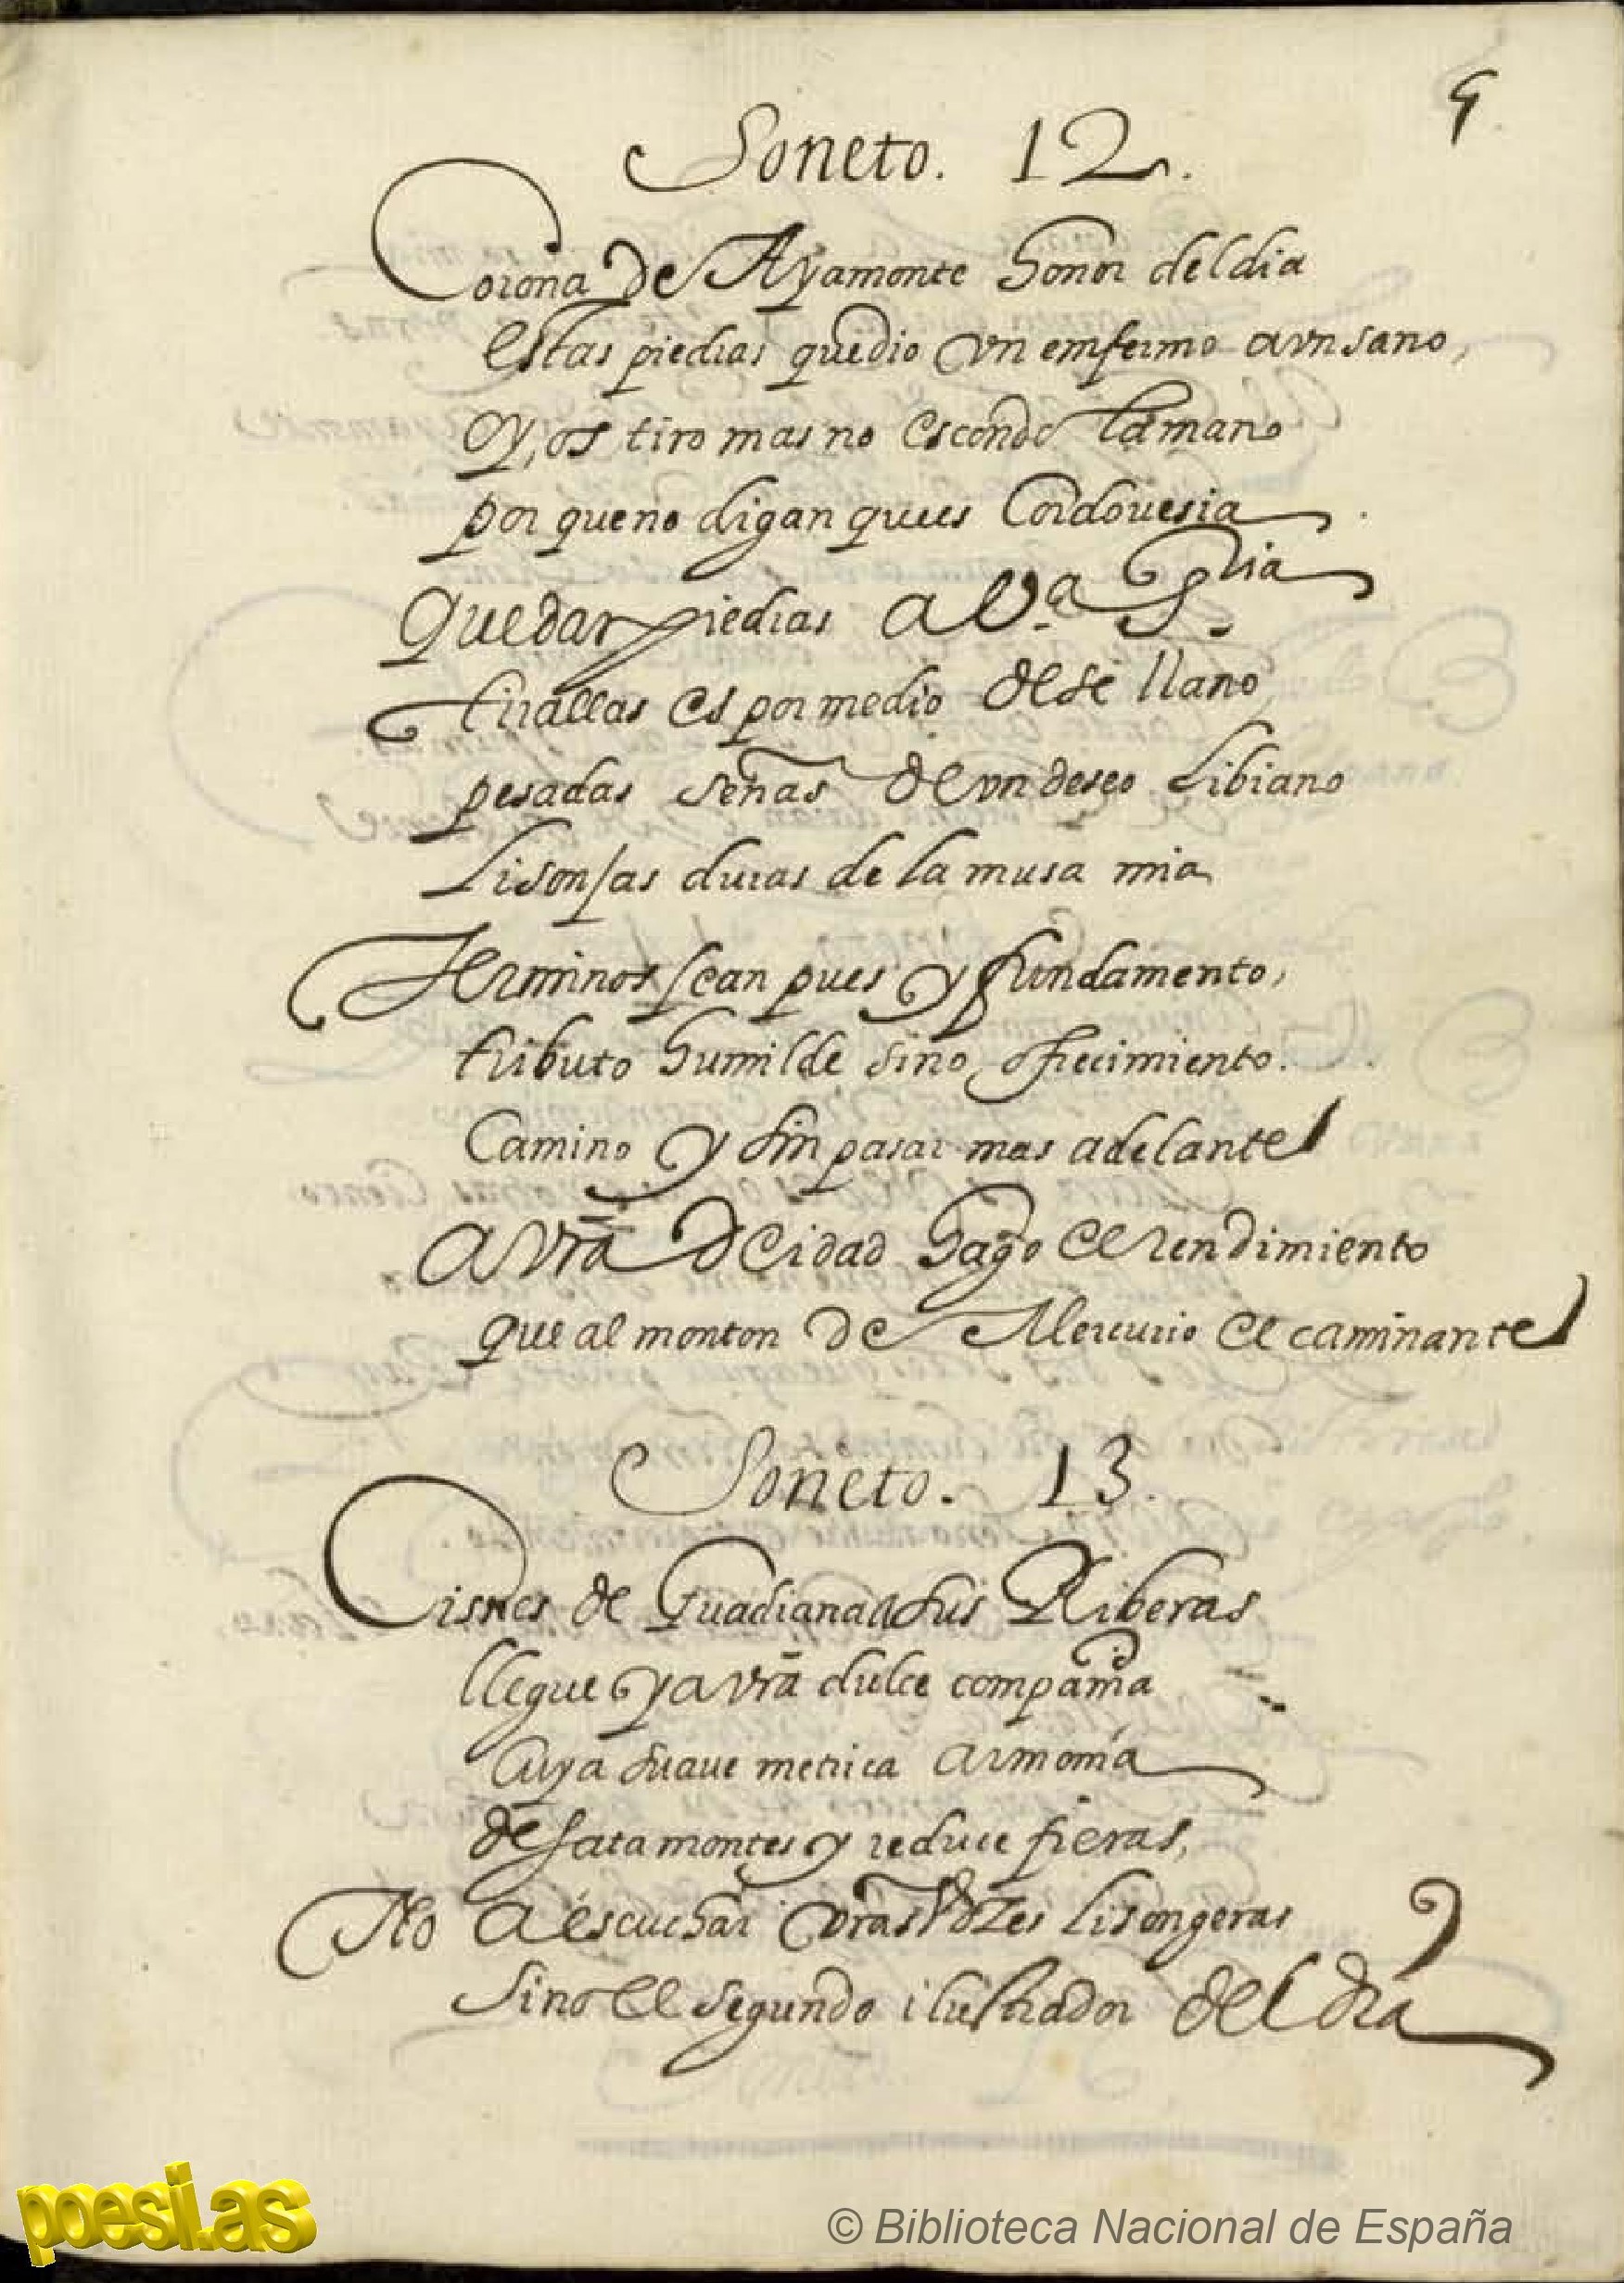 9
Soneto. 12.
Corona de Ayamonte honor del dia
estas piedras que dio vn emfermo a vn sano,
oy, os tiro mas no escondo la mano
por que no digan que es Cordouesia.
Que dar piedras a V.ª S.ria
tirallas es por medio dese llano
pesadas señas de vn deseo libiano
Lisonjas duras de la musa mia
Terminos sean pues y fundamento,
tributo humilde sino, ofrecimiento.
Camino y sin pasar mas adelante
a vrã Deidad hago el rendimiento
que al monton de Mercurio el caminante
Soneto. 13.
Cisnes de Guadiana a sus Riberas
llegue y a vrã dulce compañia
Cuya suaue metrica armonia
desata montes y reduce fieras,
No a escuchar vrãs vozes lisongeras
sino el segundo ilustrador del dia
poesi.as
© Biblioteca Nacional de España